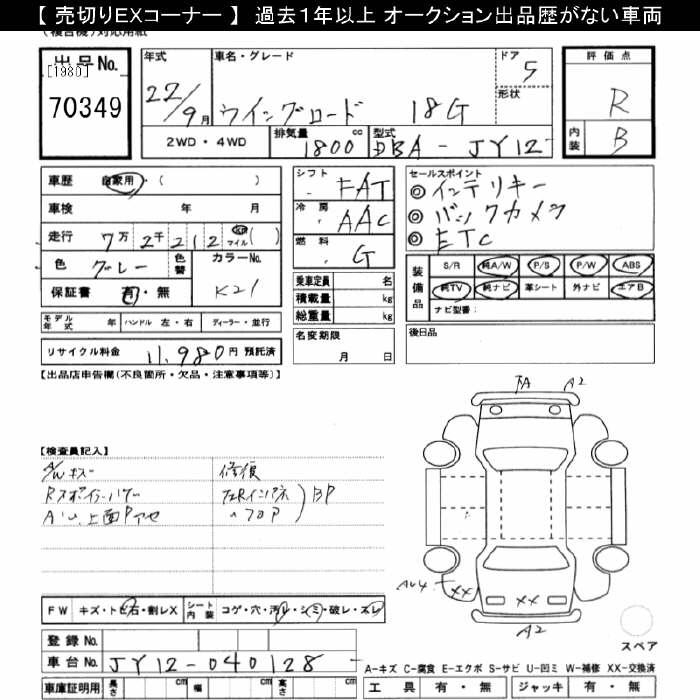 【 売切りEXコーナー 】 過去1年以上 オークション出品歴がない車両
(複合機)対応用紙
出品No.
[1980]
70349
年式
22/9月
車名・グレード
ウイングロード 18G
ドア
5
形状
評価点
R
内装
B
2WD・4WD
排気量
1800 cc
型式
DBA-JY12
車歴 自家用・( )
車検 年 月
走行 7万2千212 km マイル ( )
色 グレー
色替
カラーNo.
K21
保証書 有・無
シフト
FAT
冷房
AAC
燃料
G
乗車定員 名
積載量 kg
総重量 kg
セールスポイント
◎インテリキー
◎バックカメラ
◎ETC
装備品
S/R 純A/W P/S P/W ABS
純TV 純ナビ 革シート 外ナビ エアB
ナビ型番:
モデル年式 年 ハンドル 左・右 ディーラー・並行
リサイクル料金 11,980円 預託済
名変期限
月 日
後日品
【出品店申告欄(不良箇所・欠品・注意事項等)】
【検査員記入】
A/Wキズ
修復
BP
FW キズ・トビ石・割レX
シート内装 コゲ・穴・汚レ・シミ・破レ・スレ
登録No.
車台No. JY12-040128
車庫証明用 長さ cm 幅 cm 高さ cm
A2
XX
XX
A2
スペア
A－キズ C－腐食 E－エクボ S－サビ U－凹ミ W－補修 XX－交換済
工具 有・無 ジャッキ 有・無